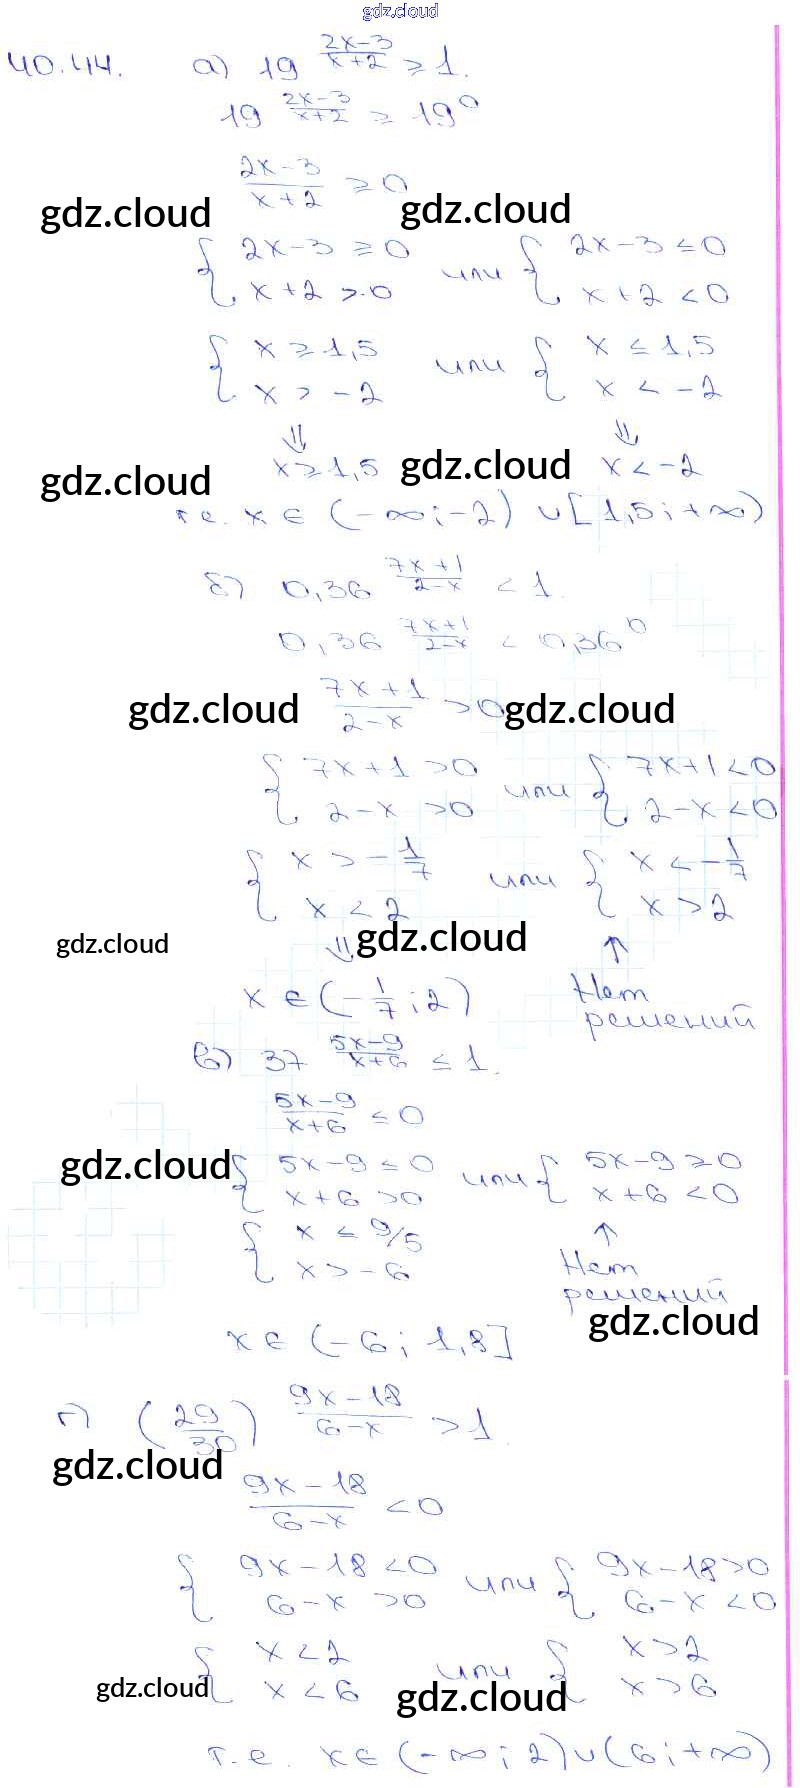 gdz.cloud
40.44. а) 19^((2x-3)/(x+2)) ≥ 1.
19^((2x-3)/(x+2)) ≥ 19^0
(2x-3)/(x+2) ≥ 0
gdz.cloud gdz.cloud
{ 2x-3 ≥ 0 или { 2x-3 ≤ 0
x+2 > 0 x+2 < 0
{ x ≥ 1,5 или { x ≤ 1,5
x > -2 x < -2
⇓ ⇓
x ≥ 1,5 x < -2
gdz.cloud gdz.cloud
т.е. x ∈ (-∞; -2) ∪ [1,5; +∞)
б) 0,36^((7x+1)/(2-x)) < 1.
0,36^((7x+1)/(2-x)) < 0,36^0
(7x+1)/(2-x) > 0
gdz.cloud gdz.cloud
{ 7x+1 > 0 или { 7x+1 < 0
2-x > 0 2-x < 0
{ x > -1/7 или { x < -1/7
x < 2 x > 2
gdz.cloud ⇓ gdz.cloud ↑
x ∈ (-1/7; 2) Нет
решений
в) 37^((5x-9)/(x+6)) ≤ 1.
(5x-9)/(x+6) ≤ 0
gdz.cloud
{ 5x-9 ≤ 0 или { 5x-9 ≥ 0
x+6 > 0 x+6 < 0
{ x ≤ 9/5 ↑
x > -6 Нет
решений
gdz.cloud
x ∈ (-6; 1,8]
г) (29/30)^((9x-18)/(6-x)) > 1.
gdz.cloud
(9x-18)/(6-x) < 0
{ 9x-18 < 0 или { 9x-18 > 0
6-x > 0 6-x < 0
{ x < 2 или { x > 2
x < 6 x > 6
gdz.cloud gdz.cloud
т.е. x ∈ (-∞; 2) ∪ (6; +∞)